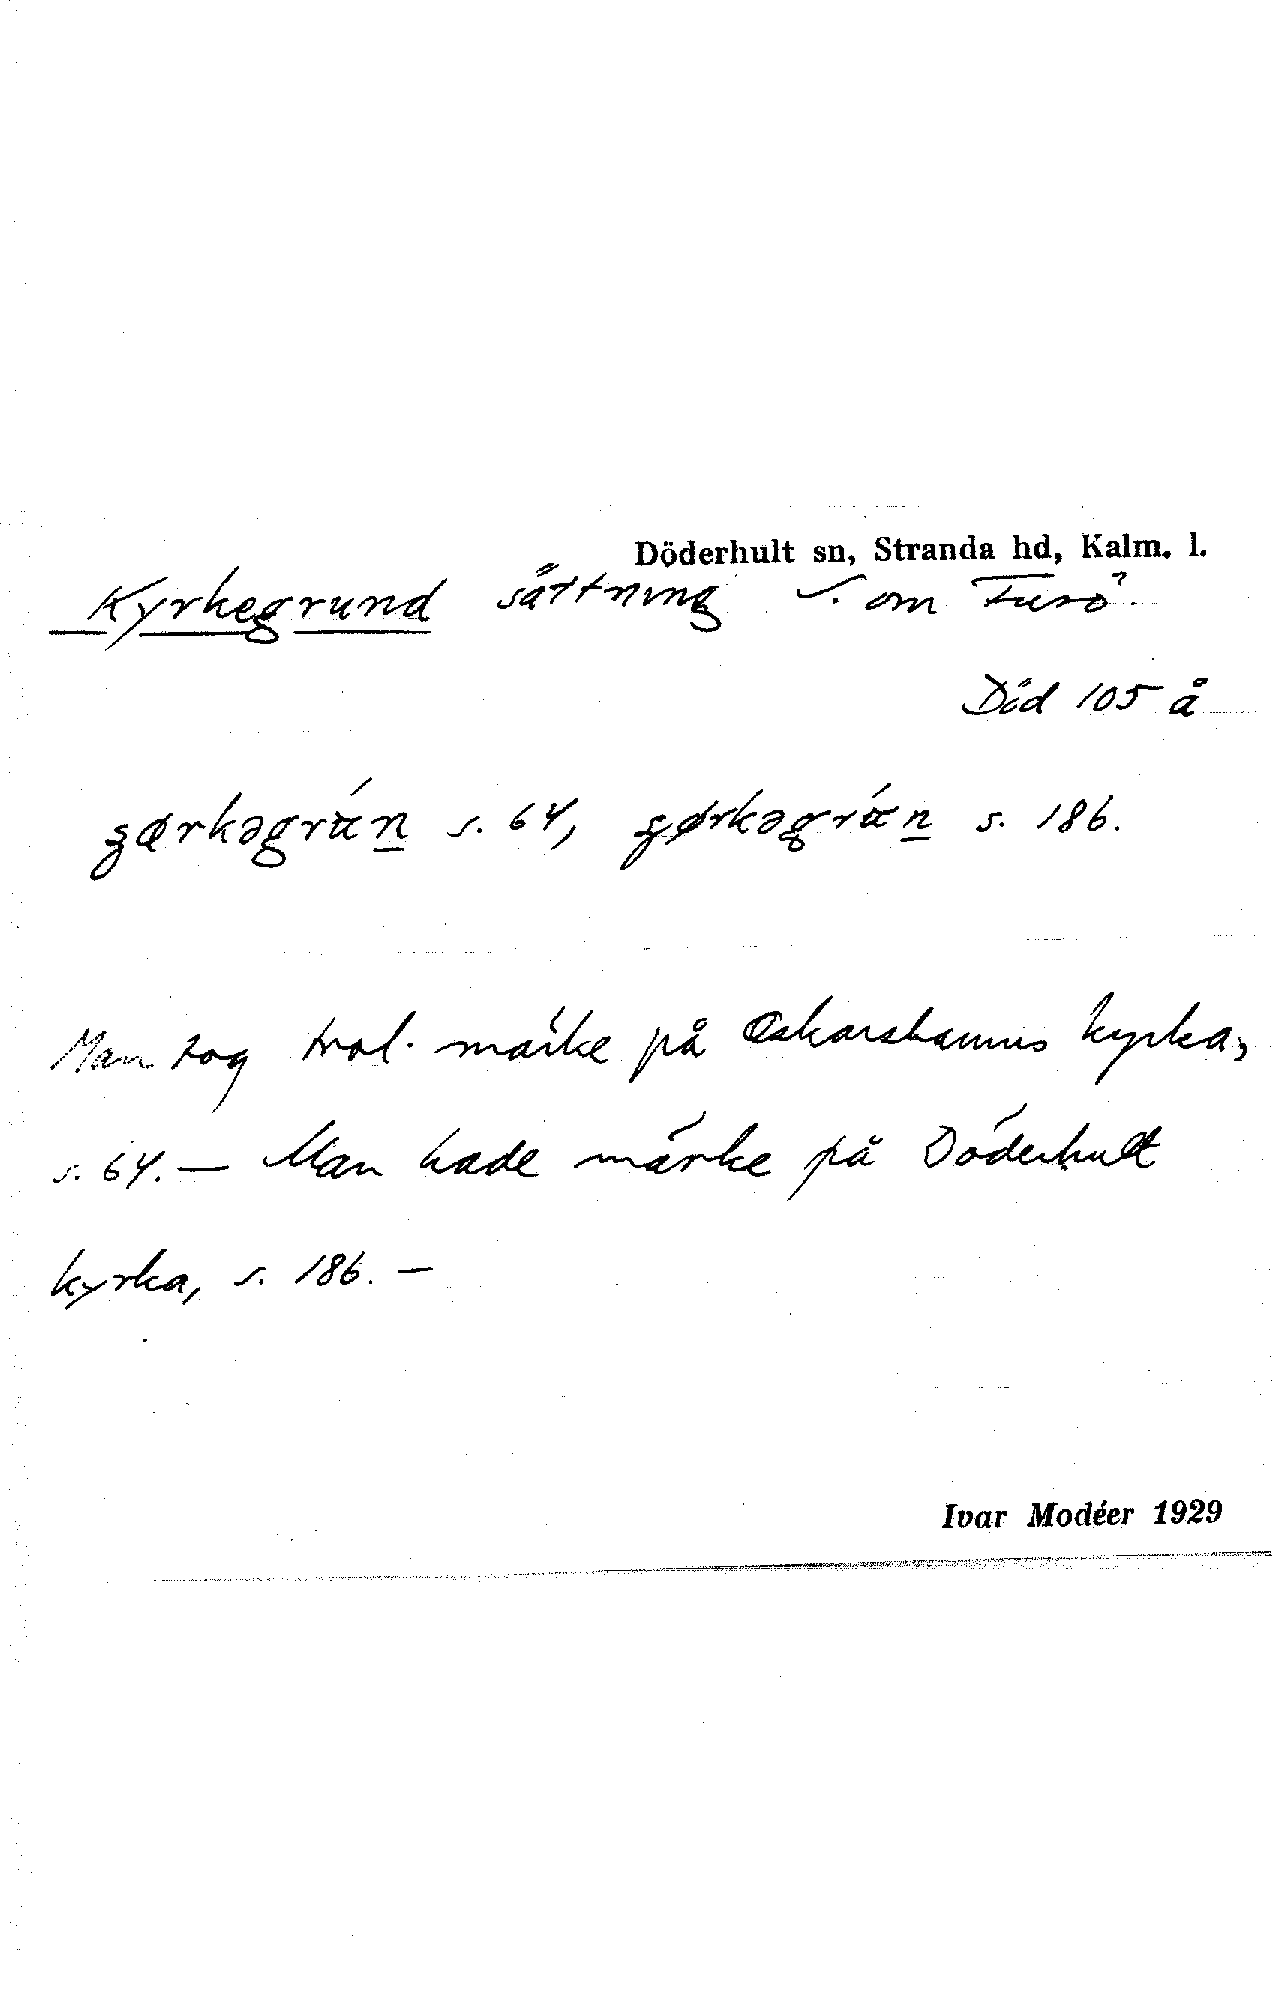 Döderhult sn, Stranda hd, Kalm. l.
Kyrkegrund sättning S. om Furö.
Död 105 å
s. 64, s. 186.
Man tog trol. märke på Oskarshamns kyrka,
s. 64. — Man hade märke på Döderhult
kyrka, s. 186. —
Ivar Modéer 1929